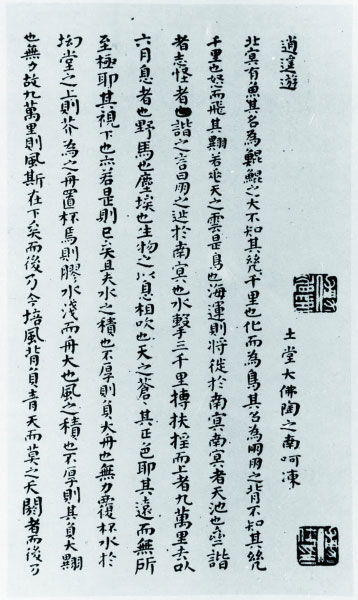 土堂大佛陶之南呵凍
逍遥遊
北冥有魚其名為鯤鯤之大不知其幾千里也化而為鳥其名為朋朋之背不知其幾
千里也怒而飛其翼若垂天之雲是鳥也海運則將徙於南冥南冥者天池也齊諧
者志怪者也諧之言曰朋之徙於南冥也水擊三千里摶扶摇而上者九萬里去以
六月息者也野馬也塵埃也生物之以息相吹也天之蒼〻其正色耶其遠而無所
至極耶其視下也亦若是則已矣且夫水之積也不厚則負大舟也無力覆杯水於
坳堂之上則芥為之舟置杯焉則膠水淺而舟大也風之積也不厚則其負大翼
也無力故九萬里則風斯在下矣而後乃今培風背負青天而莫之夭閼者而後乃